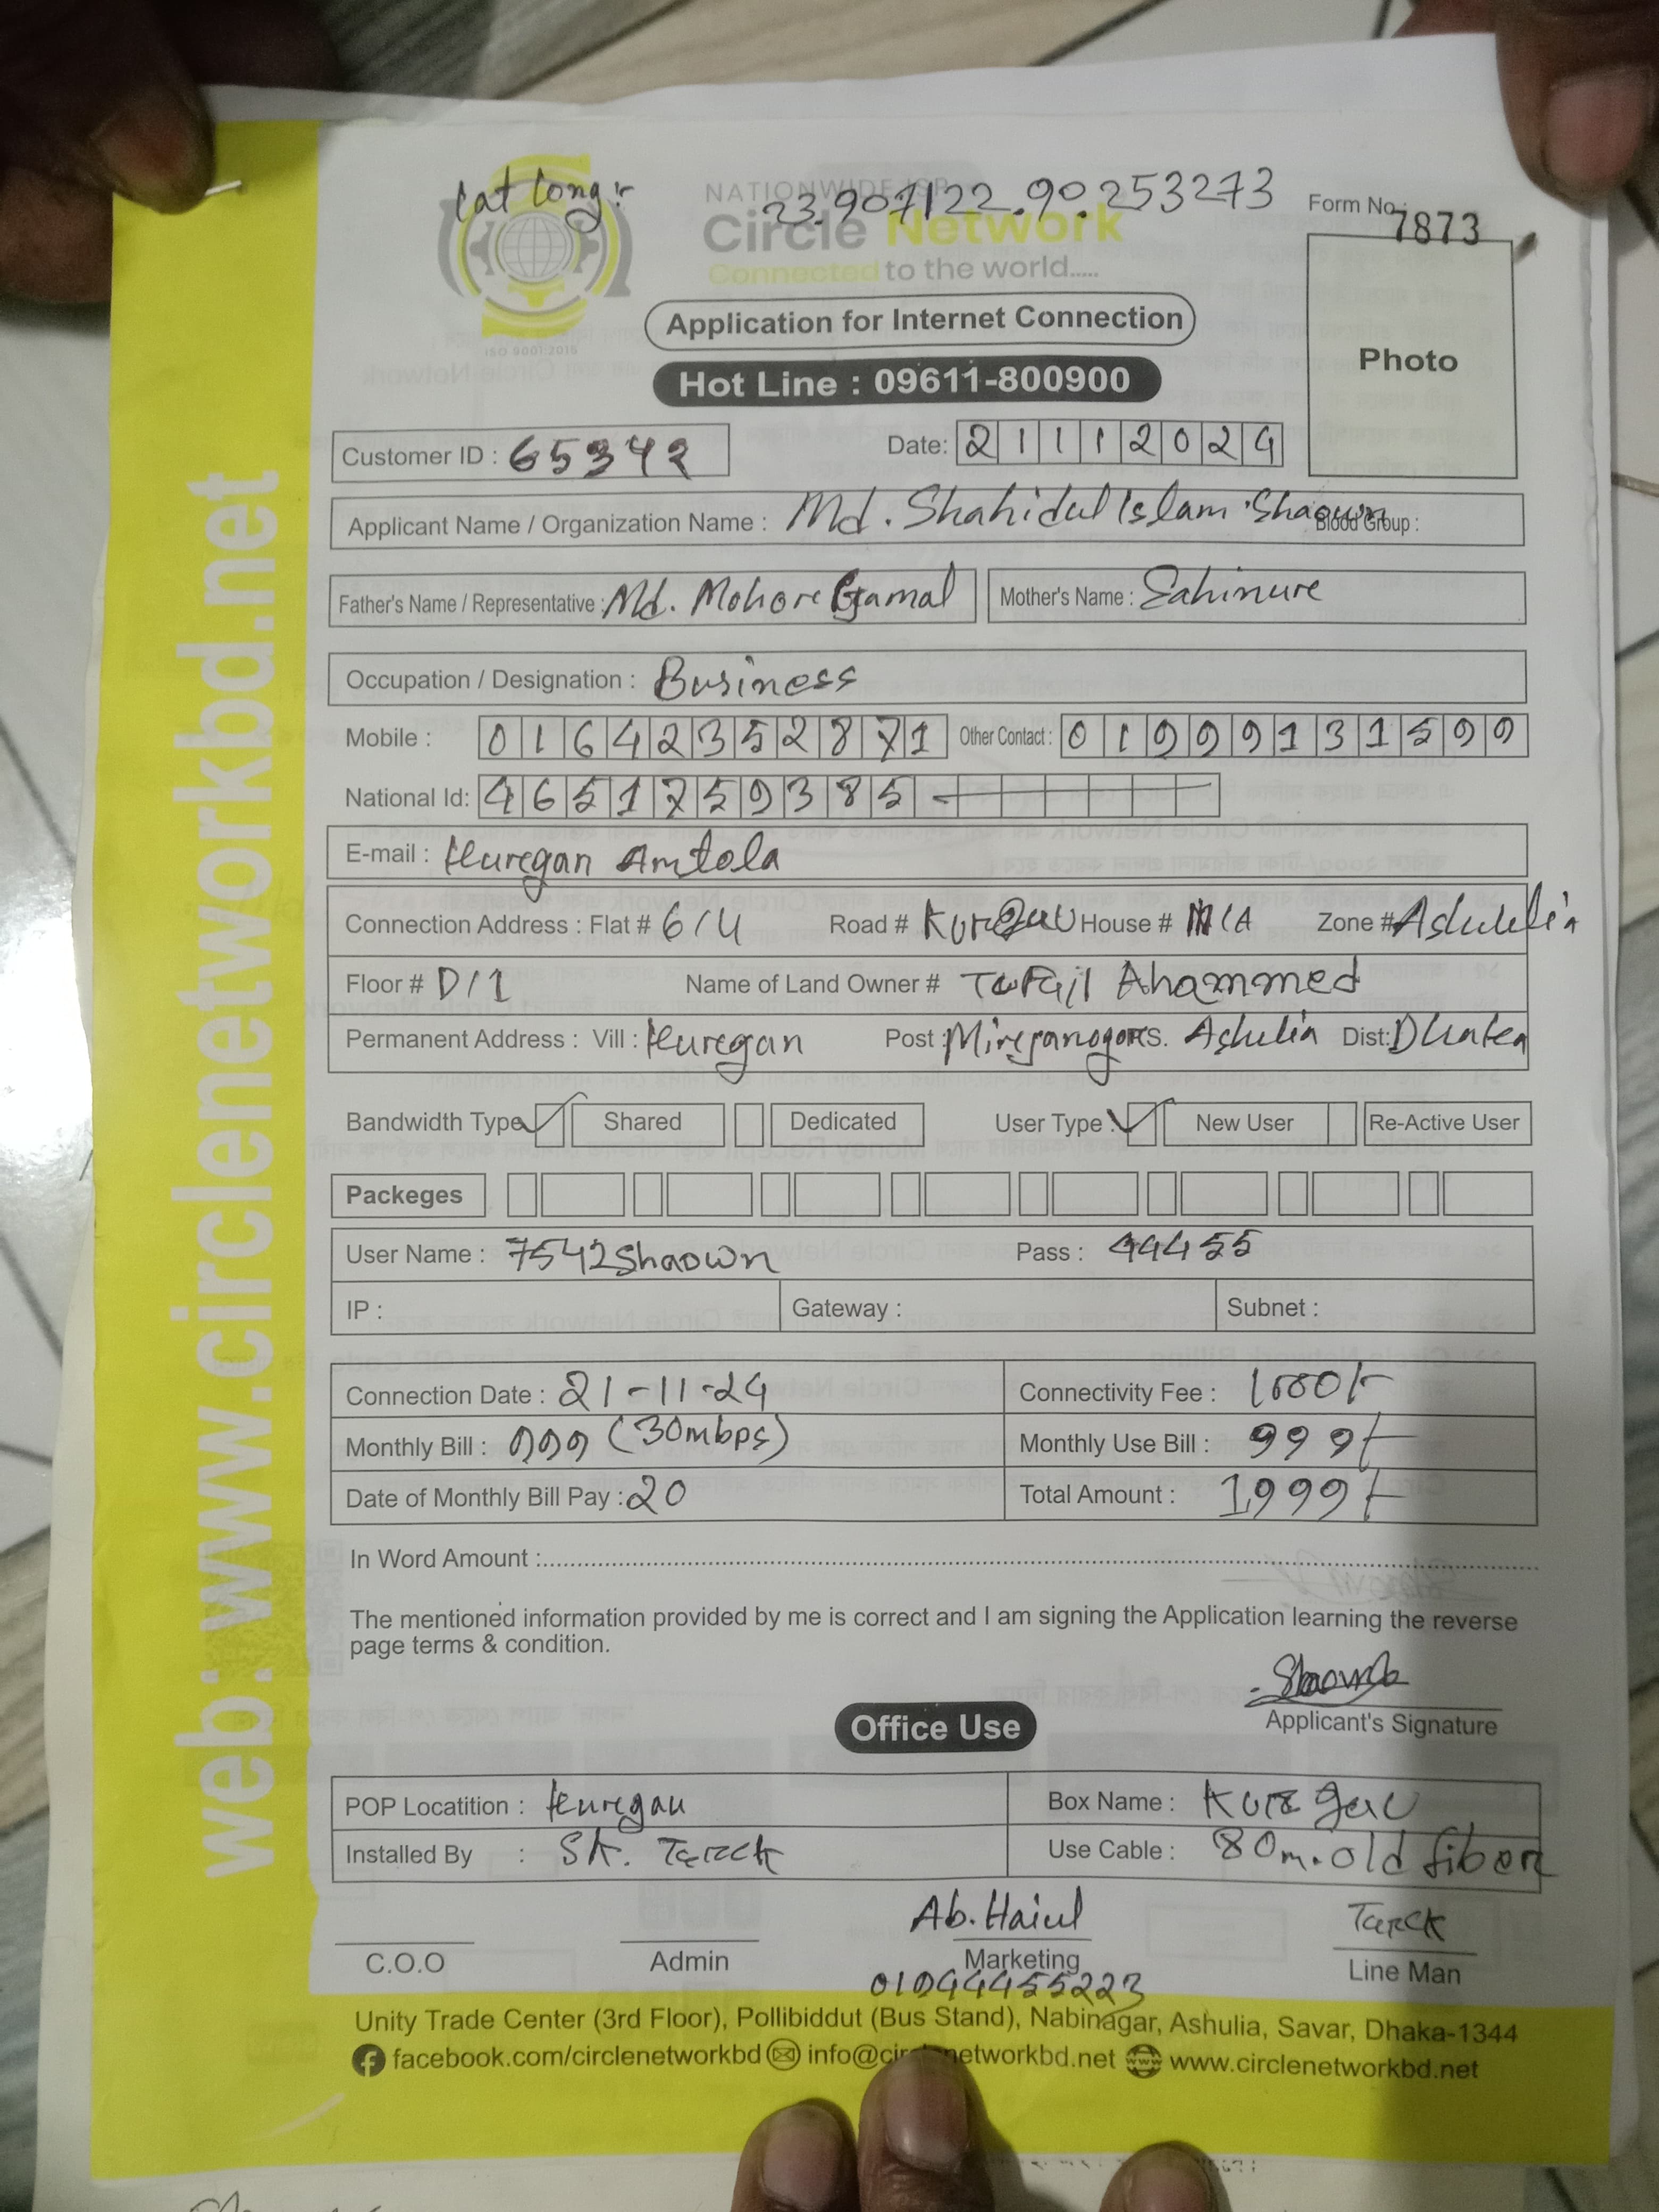 Lat long:- 23.907122.90.253273
NATIONWIDE ISP
Circle Network
Connected to the world.....
ISO 9001:2015
Form No.: 7873
Photo
Application for Internet Connection
Hot Line : 09611-800900
Customer ID : 65342
Date: 21112024
Applicant Name / Organization Name : Md. Shahidul Islam Shaown Blood Group :
Father's Name / Representative : Md. Mohore Gamal Mother's Name : Sahinure
Occupation / Designation : Business
Mobile : 01642352871 Other Contact : 01999131599
National Id: 4651759385
E-mail : Kuregan Amtola
Connection Address : Flat # 6/U Road # Kuregau House # N/A Zone # Ashulia
Floor # D/1 Name of Land Owner # Tofail Ahammed
Permanent Address : Vill : Kuregan Post : P.S. Ashulia Dist: Dhaka
Bandwidth Type Shared Dedicated User Type : New User Re-Active User
Packeges
User Name : 7542Shaown Pass : 44455
IP : Gateway : Subnet :
Connection Date : 21-11-24 Connectivity Fee : 1000/-
Monthly Bill : 999 (30mbps) Monthly Use Bill : 999/-
Date of Monthly Bill Pay : 20 Total Amount : 1999/-
In Word Amount :
The mentioned information provided by me is correct and I am signing the Application learning the reverse
page terms & condition.
Shaown
Applicant's Signature
Office Use
POP Locatition : Kuregau Box Name : Kuregau
Installed By : SK. Tareck Use Cable : 80m. old fiber
Ab. Haiul Tareck
C.O.O Admin Marketing Line Man
01944455223
Unity Trade Center (3rd Floor), Pollibiddut (Bus Stand), Nabinagar, Ashulia, Savar, Dhaka-1344
facebook.com/circlenetworkbd info@circlenetworkbd.net www.circlenetworkbd.net
web: www.circlenetworkbd.net